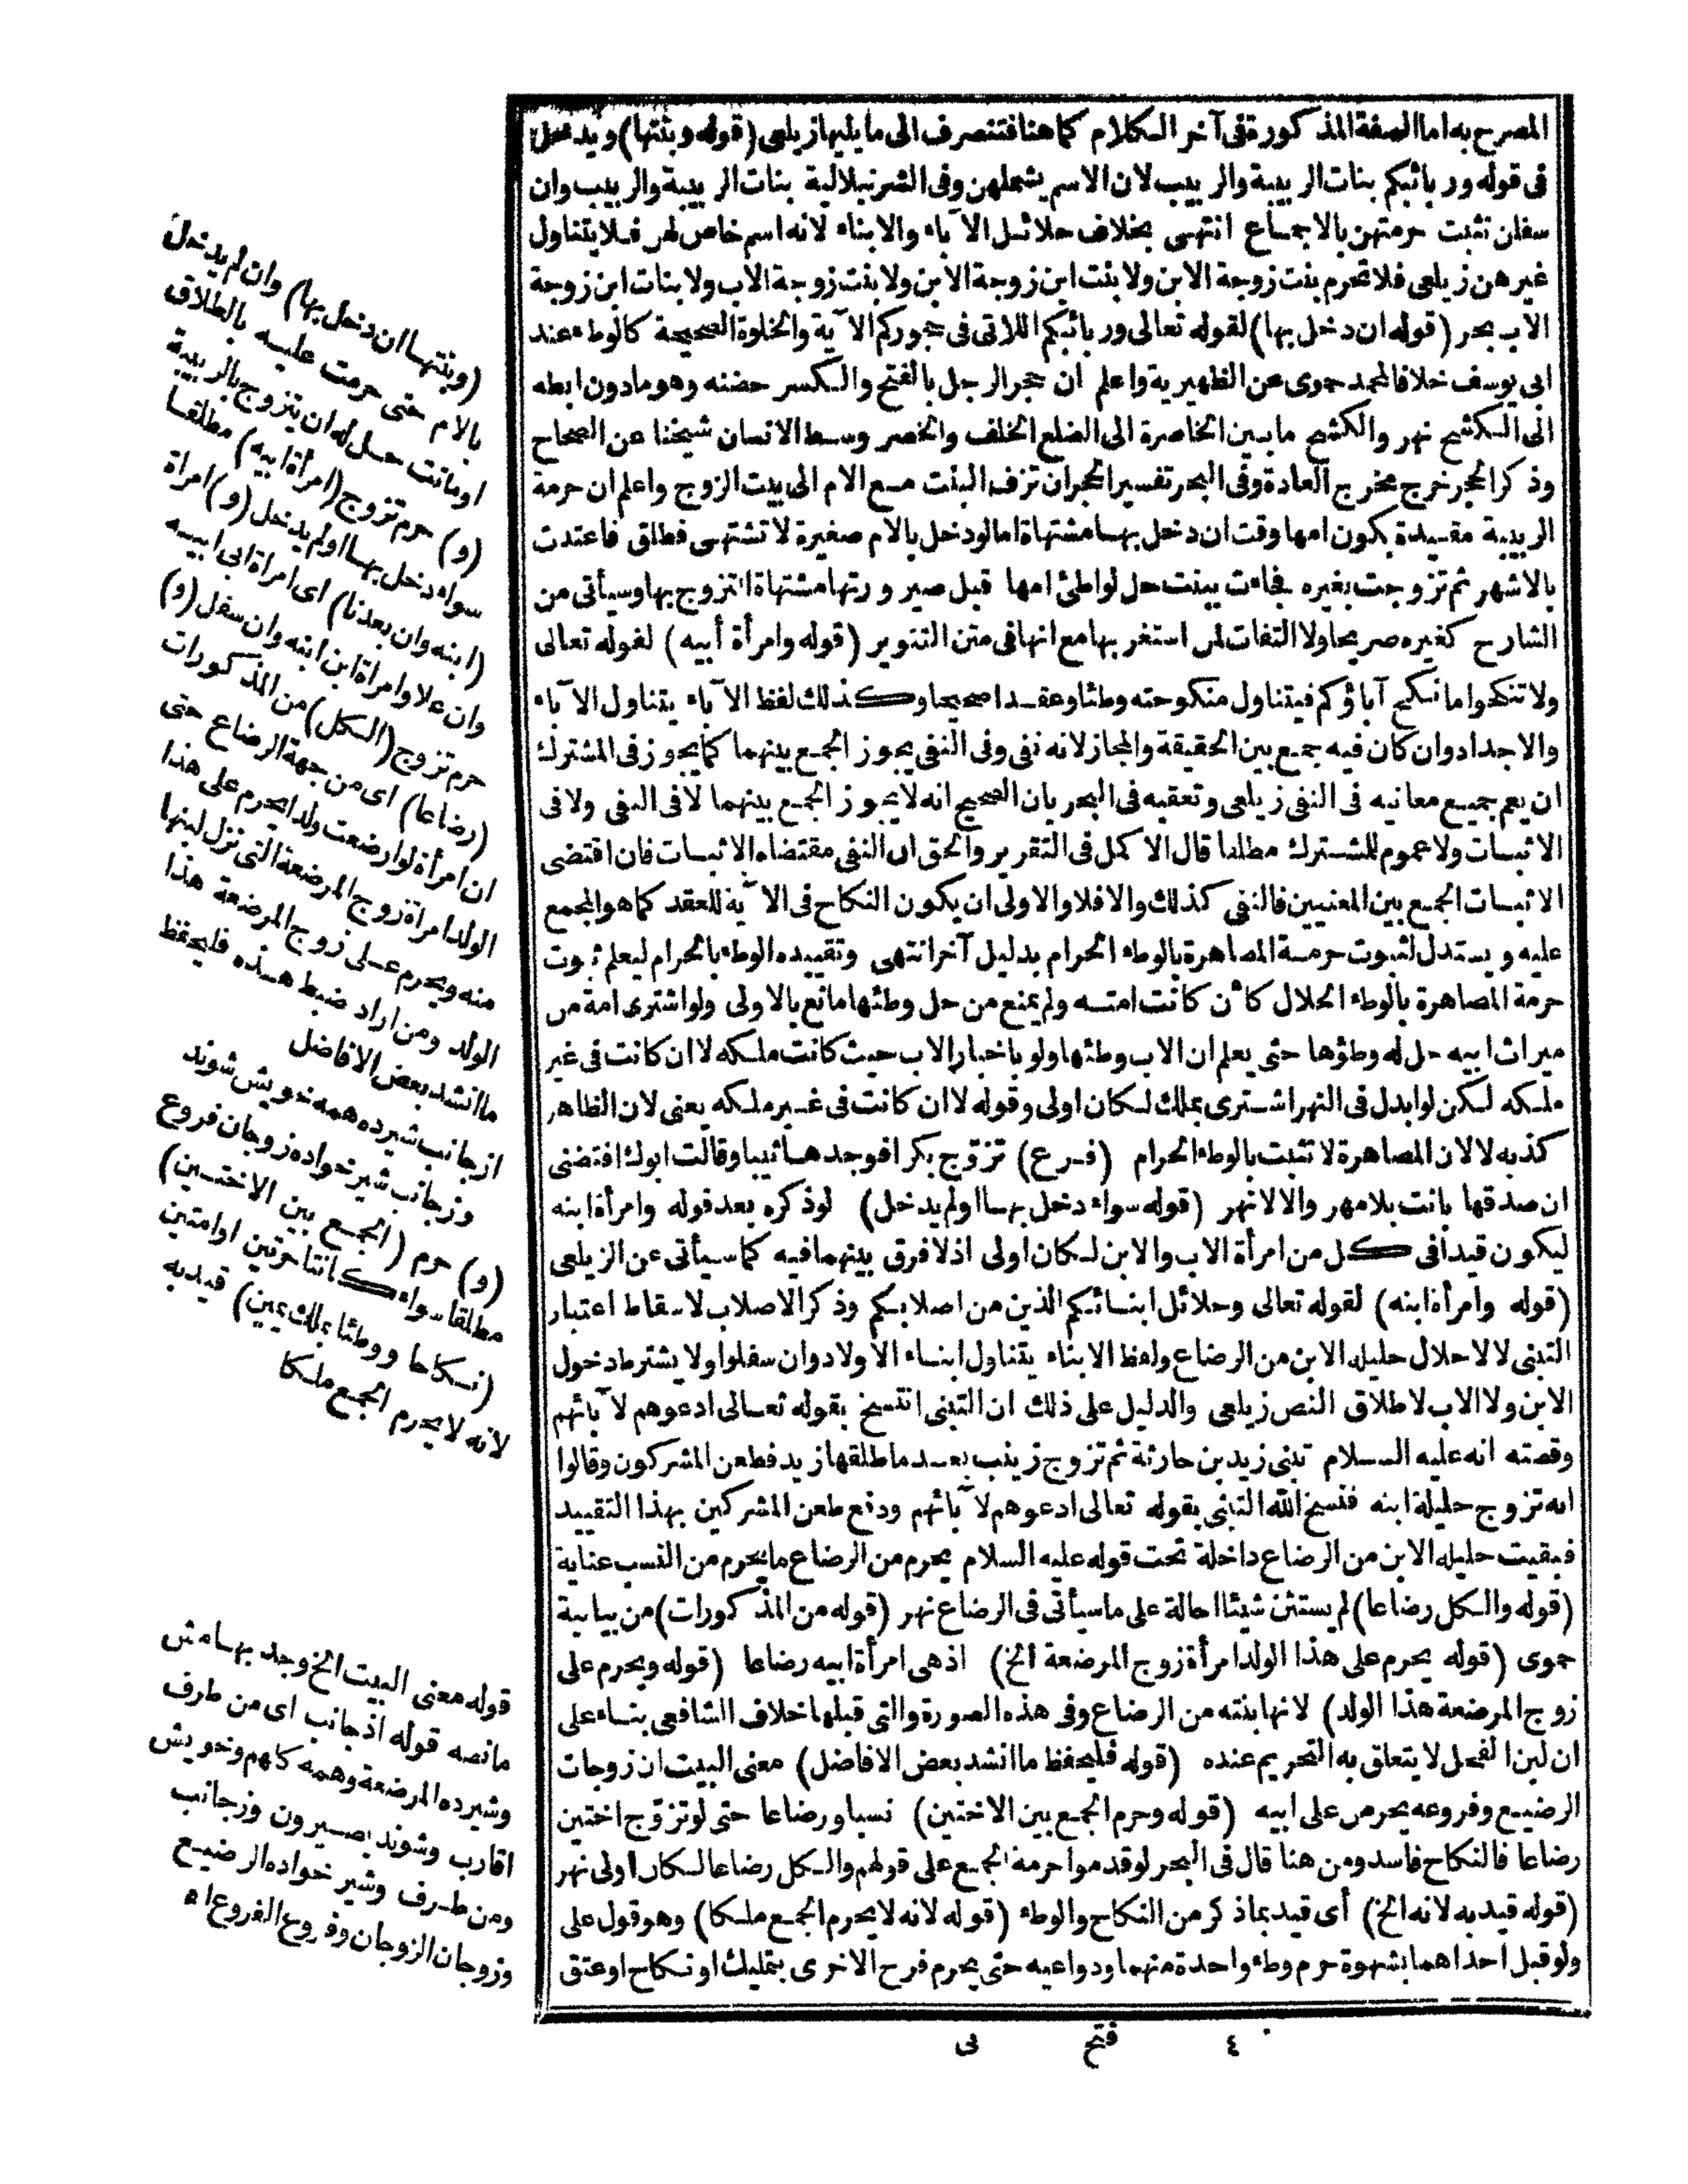 المصرح به اما الصفة المذكورة فى آخر الكلام كما هنا فتنصرف الى ما يليها زيلعى (قوله وبنتها) ويدخل
فى قوله وربائبكم بنات الربيبة والربيب لان الاسم يشملهن وفى الشرنبلالية بنات الربيبة والربيب وان
سفلن تثبت حرمتهن بالاجماع انتهى بخلاف حلائل الآباء والابناء لانه اسم خاص لهن فلا يتناول
غيرهن زيلعى فلا تحرم بنت زوجة الابن ولا بنت ابن زوجة الابن ولا بنت زوجة الاب ولا بنات ابن زوجة
الاب بحر (قوله ان دخل بها) لقوله تعالى وربائبكم اللاتى فى حجوركم الآية والخلوة الصحيحة كالوطء عند
ابى يوسف خلافا لمحمد حموى عن الظهيرية واعلم ان حجر الرجل بالفتح والكسر حضنه وهو مادون ابطه
الى الكشح نهر والكشح ما بين الخاصرة الى الضلع الخلف والخصر وسط الانسان شيخنا عن الصحاح
وذكر الحجر خرج مخرج العادة وفى البحر تفسير الحجر ان تزف البنت مع الام الى بيت الزوج واعلم ان حرمة
الربيبة مقيدة بكون امها وقت ان دخل بها مشتهاة اما لو دخل بالام صغيرة لا تشتهى فطلق فاعتدت
بالاشهر ثم تزوجت بغيره فجاءت ببنت حل لواطئ امها قبل صيرورتها مشتهاة التزوج بها وسيأتى من
الشارح كغيره صريحا ولا التفات لمن استغربها مع انها فى متن التنوير (قوله وامرأة أبيه) لقوله تعالى
ولا تنكحوا ما نكح آباؤكم فيتناول منكوحته وطئا وعقدا صحيحا وكذلك لفظ الآباء يتناول الآباء
والاجداد وان كان فيه جمع بين الحقيقة والمجاز لانه نفى وفى النفى يجوز الجمع بينهما كما يجوز فى المشترك
ان يعم جميع معانيه فى النفى زيلعى وتعقبه فى البحر بان الصحيح انه لا يجوز الجمع بينهما لا فى النفى ولا فى
الاثبات ولا عموم للمشترك مطلقا قال الاكمل فى التقرير والحق ان النفى مقتضاه الاثبات فان اقتضى
الاثبات الجمع بين المعنيين فالنفى كذلك والا فلا والاولى ان يكون النكاح فى الآية للعقد كما هو المجمع
عليه ويستدل لثبوت حرمة المصاهرة بالوطء الحرام بدليل آخر انتهى وتقييده الوطء بالحرام ليعلم ثبوت
حرمة المصاهرة بالوطء الحلال كأن كانت امته ولم يمنع من حل وطئها مانع بالاولى ولو اشترى امة من
ميراث ابيه حل له وطؤها حتى يعلم ان الاب وطئها ولو باخبار الاب حيث كانت ملكه لا ان كانت فى غير
ملكه لكن لو ابدل فى النهر اشترى بملك لكان اولى وقوله لا ان كانت فى غير ملكه يعنى لان الظاهر
كذبه لا لان المصاهرة لا تثبت بالوطء الحرام (فرع) تزوج بكرا فوجدها ثيبا وقالت ابوك افتضنى
ان صدقها بانت بلا مهر والا لا نهر (قوله سواء دخل بها او لم يدخل) لو ذكره بعد قوله وامرأة ابنه
ليكون قيدا فى كل من امرأة الاب والابن لكان اولى اذ لا فرق بينهما فيه كما سيأتى عن الزيلعى
(قوله وامرأة ابنه) لقوله تعالى وحلائل ابنائكم الذين من اصلابكم وذكر الاصلاب لاسقاط اعتبار
التبنى لا لاحلال حليلة الابن من الرضاع ولفظ الابناء يتناول ابناء الاولاد وان سفلوا ولا يشترط دخول
الابن ولا الاب لاطلاق النص زيلعى والدليل على ذلك ان التبنى انتسخ بقوله تعالى ادعوهم لآبائهم
وقصته انه عليه السلام تبنى زيد بن حارثة ثم تزوج زينب بعد ما طلقها زيد فطعن المشركون وقالوا
انه تزوج حليلة ابنه فنسخ الله التبنى بقوله تعالى ادعوهم لآبائهم ودفع طعن المشركين بهذا التقييد
فبقيت حليلة الابن من الرضاع داخلة تحت قوله عليه السلام يحرم من الرضاع ما يحرم من النسب عناية
(قوله والكل رضاعا) لم يستثن شيئا احالة على ما سيأتى فى الرضاع نهر (قوله من المذكورات) من بيانية
حموى (قوله يحرم على هذا الولد امرأة زوج المرضعة الخ) اذ هى امرأة ابيه رضاعا (قوله ويحرم على
زوج المرضعة هذا الولد) لانها بنته من الرضاع وفى هذه الصورة والتى قبلها خلاف الشافعى بناء على
ان لبن الفحل لا يتعلق به التحريم عنده (قوله فليحفظ ما انشد بعض الافاضل) معنى البيت ان زوجات
الرضيع وفروعه يحرمن على ابيه (قوله وحرم الجمع بين الاختين) نسبا ورضاعا حتى لو تزوج اختين
رضاعا فالنكاح فاسد ومن هنا قال فى البحر لو قدموا حرمة الجمع على قولهم والكل رضاعا لكان اولى نهر
(قوله قيد به لانه الخ) أى قيد بما ذكر من النكاح والوطء (قوله لانه لا يحرم الجمع ملكا) وهو قول على
ولو قبل احداهما بشهوة حرم وطء واحدة منهما ودواعيه حتى يحرم فرج الاخرى بتمليك او نكاح او عتق
٤ فتح نى
(وبنتها ان دخل بها) وان لم يدخل
بالام حتى حرمت عليه بالطلاق
او ماتت حل له ان يتزوج بالربيبة
(و) حرم تزوج (امرأة ابيه) مطلقا
سواء دخل بها او لم يدخل (و) امراة
(ابنه وان بعدنا) اى امراة ابى ابيه
وان علا وامراة ابن ابنه وان سفل (و)
حرم تزوج (الكل) من المذكورات
(رضاعا) اى من جهة الرضاع حتى
ان امرأة لو ارضعت ولدا يحرم على هذا
الولد امرأة زوج المرضعة التى نزل لبنها
منه ويحرم على زوج المرضعة هذا
الولد ومن اراد ضبط هذه فليحفظ
ما انشد بعض الافاضل
از جانب شيرده همه خويش شوند
وز جانب شيرخواده زوجان فروع
(و) حرم (الجمع بين الاختين)
مطلقا سواء كانتا حرتين او امتين
(نكاحا ووطئا بملك يمين) قيد به
لانه لا يحرم الجمع ملكا
قوله معنى البيت الخ وجد بهامش
ما نصه قوله اذ جانب اى من طرف
وشيرده المرضعة وهمه كلهم وخويش
اقارب وشوند يصيرون وزجانب
ومن طرف وشير خواده الرضيع
وزوجان الزوجان وفروع الفروع اه